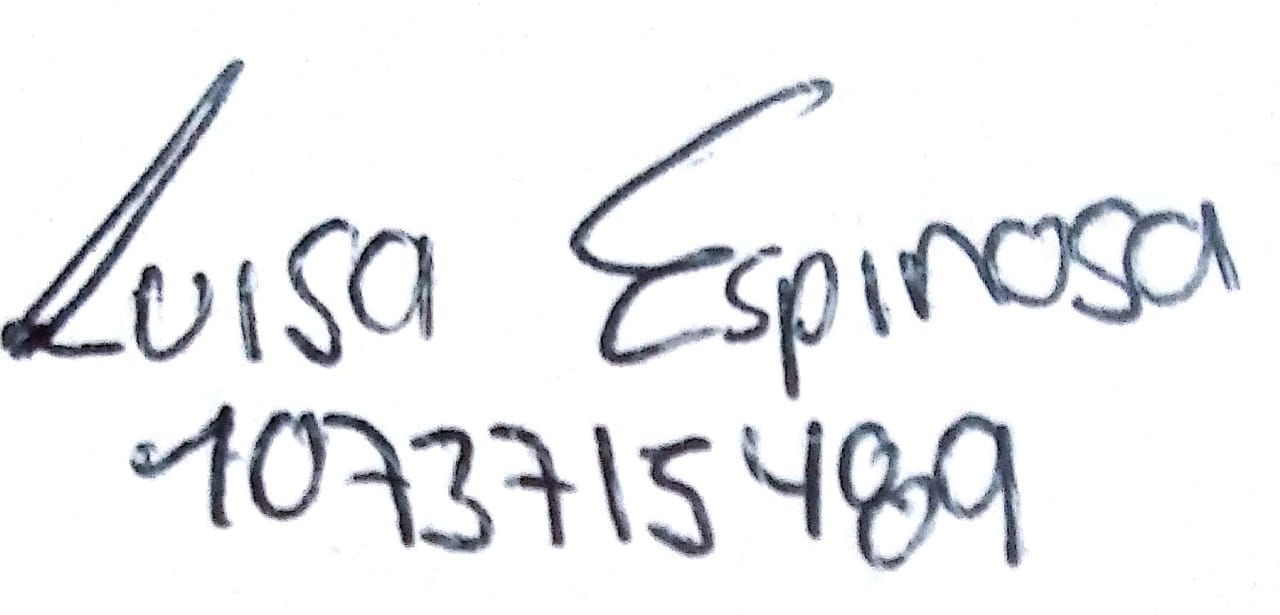 Luisa Espinosa
1073715489